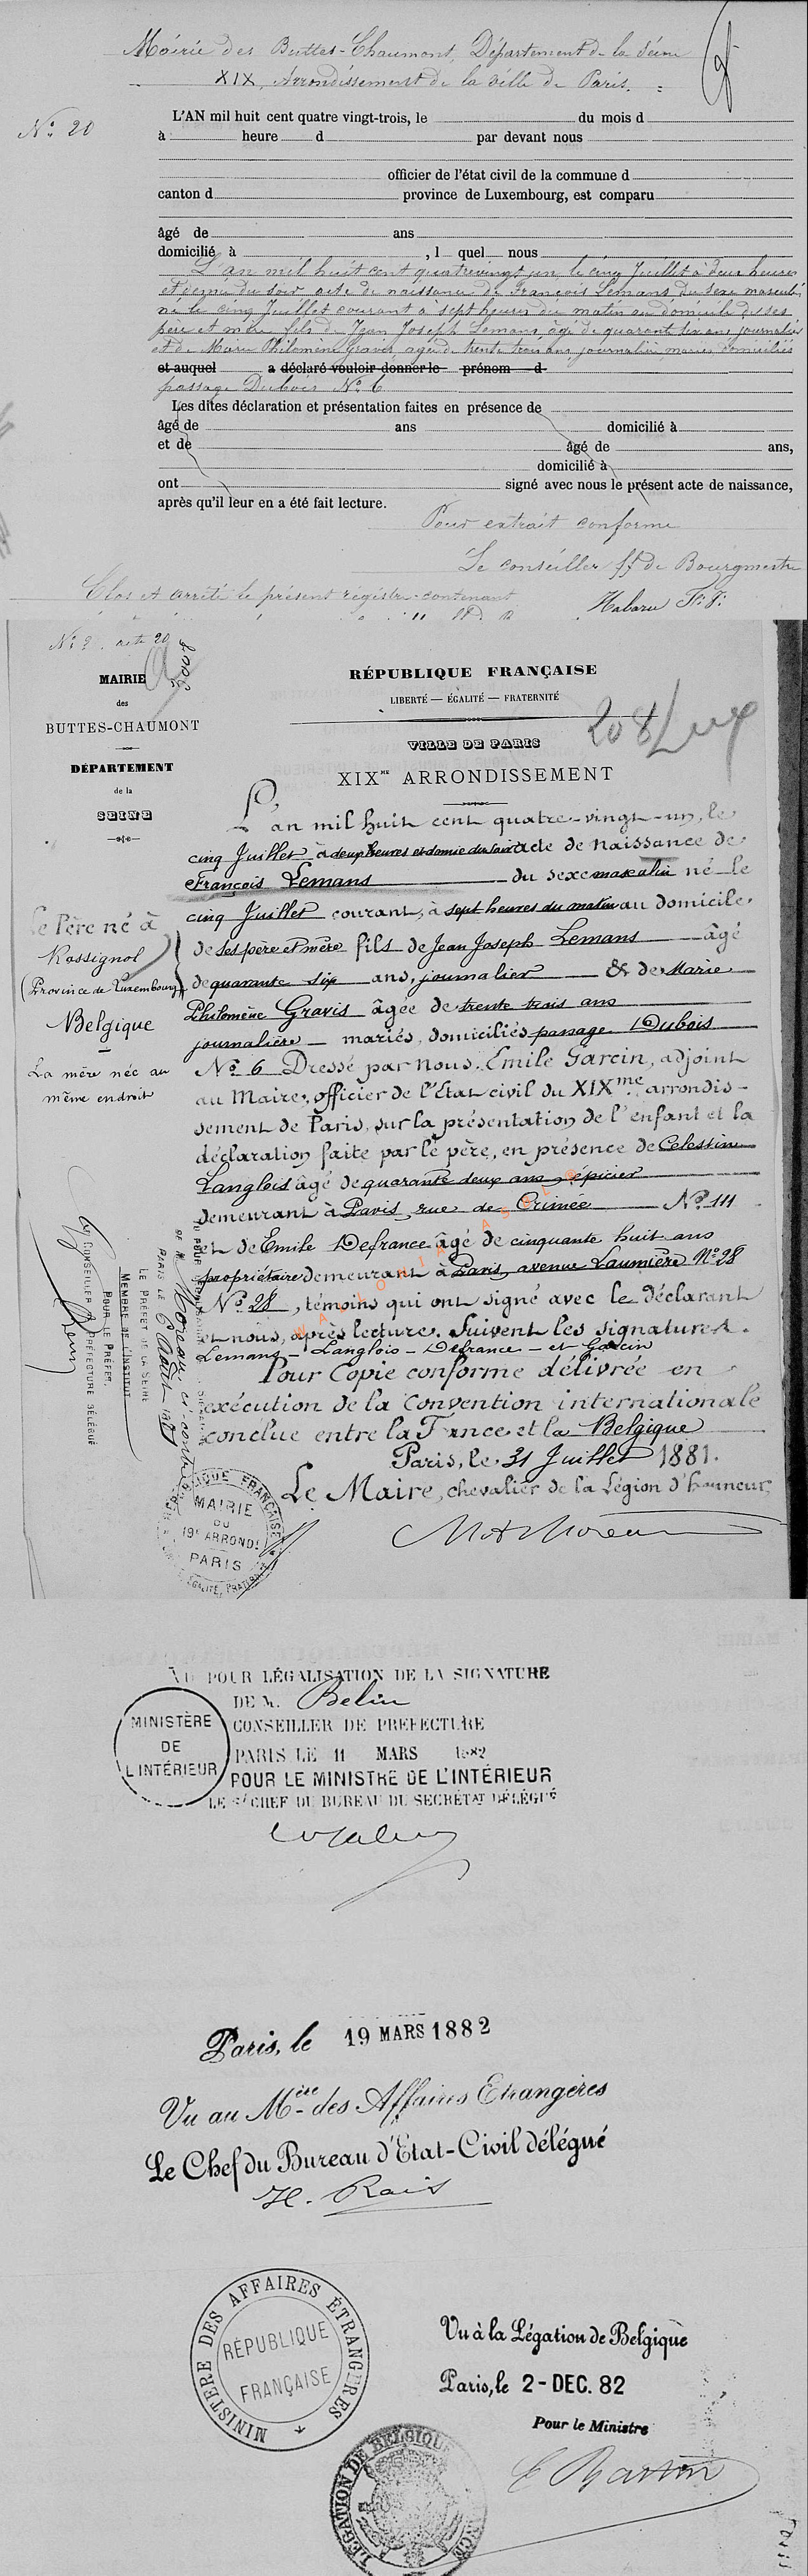 Mairie des Buttes-Chaumont, Département de la Seine
XIX, Arrondissement de la ville de Paris.
N° 20
L'AN mil huit cent quatre vingt-trois, le du mois d
à heure d par devant nous
officier de l'état civil de la commune d
canton d province de Luxembourg, est comparu
âgé de ans
domicilié à , l quel nous
L'an mil huit cent quatrevingt un, le cinq Juillet à deux heures
et demie du soir acte de naissance de François Lemans, du sexe masculin
né le cinq Juillet courant à sept heures du matin au domicile de ses
père et mère fils de Jean Joseph Lemans, âgé de quarante six ans, journalier
et de Marie Philomène Gravis, agée de trente trois ans, journalière, mariés, domiciliés
et auquel a déclaré vouloir donner le prénom d
passage Dubois N° 6
Les dites déclaration et présentation faites en présence de
âgé de ans domicilié à
et de âgé de ans,
domicilié à
ont signé avec nous le présent acte de naissance,
après qu'il leur en a été fait lecture.
Pour extrait conforme
Le conseiller ff de Bourgmestre
Clos et arrêté le présent régistre contenant
Habaru
N° 2. acte 20
MAIRIE
des
BUTTES-CHAUMONT
DÉPARTEMENT
de la
SEINE
RÉPUBLIQUE FRANÇAISE
LIBERTÉ — ÉGALITÉ — FRATERNITÉ
208 Lux
VILLE DE PARIS
XIXME ARRONDISSEMENT
L'an mil huit cent quatre-vingt-un, le
cinq Juillet à deux heures et demie du soir acte de naissance de
François Lemans du sexe masculin né le
cinq Juillet courant, à sept heures du matin au domicile
de ses père et mère fils de Jean Joseph Lemans âgé
de quarante six ans, journalier & de Marie
Philomène Gravis âgée de trente trois ans
journalière mariés, domiciliés passage Dubois
N° 6 Dressé par nous, Emile Garcin, adjoint
au Maire, officier de l'Etat civil du XIXme arrondis-
sement de Paris, sur la présentation de l'enfant et la
déclaration faite par le père, en présence de Celestin
Langlois âgé de quarante deux ans, épicier
demeurant à Paris, rue de Crimée N° 111
et de Emile Defrance âgé de cinquante huit ans
propriétaire demeurant à Paris, avenue Laumière N° 28
N° 28, témoins qui ont signé avec le déclarant
et nous, après lecture. Suivent les signatures.
Lemans - Langlois - Defrance - et Garcin
Pour Copie conforme délivrée en
exécution de la Convention internationale
conclue entre la France et la Belgique
Paris, le 31 Juillet 1881.
Le Maire, chevalier de la Légion d'honneur,
Le Père né à
Rossignol
(Province de Luxembourg)
Belgique
La mère née au
même endroit
LE PRÉFET DE LA SEINE
MEMBRE DE L'INSTITUT
POUR LE PRÉFET,
LE CONSEILLER DE PRÉFECTURE DÉLÉGUÉ
RÉPUBLIQUE FRANÇAISE
MAIRIE
DU
19E ARRONDT
PARIS
WALLONIA ASBL
VU POUR LÉGALISATION DE LA SIGNATURE
DE M. Belin
CONSEILLER DE PREFECTURE
PARIS LE 11 MARS 1882
POUR LE MINISTRE DE L'INTÉRIEUR
LE S/CHEF DU BUREAU DU SECRÉTAT DÉLÉGUÉ
MINISTÈRE
DE
L'INTÉRIEUR
Paris, le 19 MARS 1882
Vu au Mère des Affaires Etrangères
Le Chef du Bureau d'Etat-Civil délégué
H. Rais
MINISTERE DES AFFAIRES ÉTRANGERES
RÉPUBLIQUE
FRANÇAISE
Vu à la Légation de Belgique
Paris, le 2-DEC. 82
Pour le Ministre
LÉGATION DE BELGIQUE